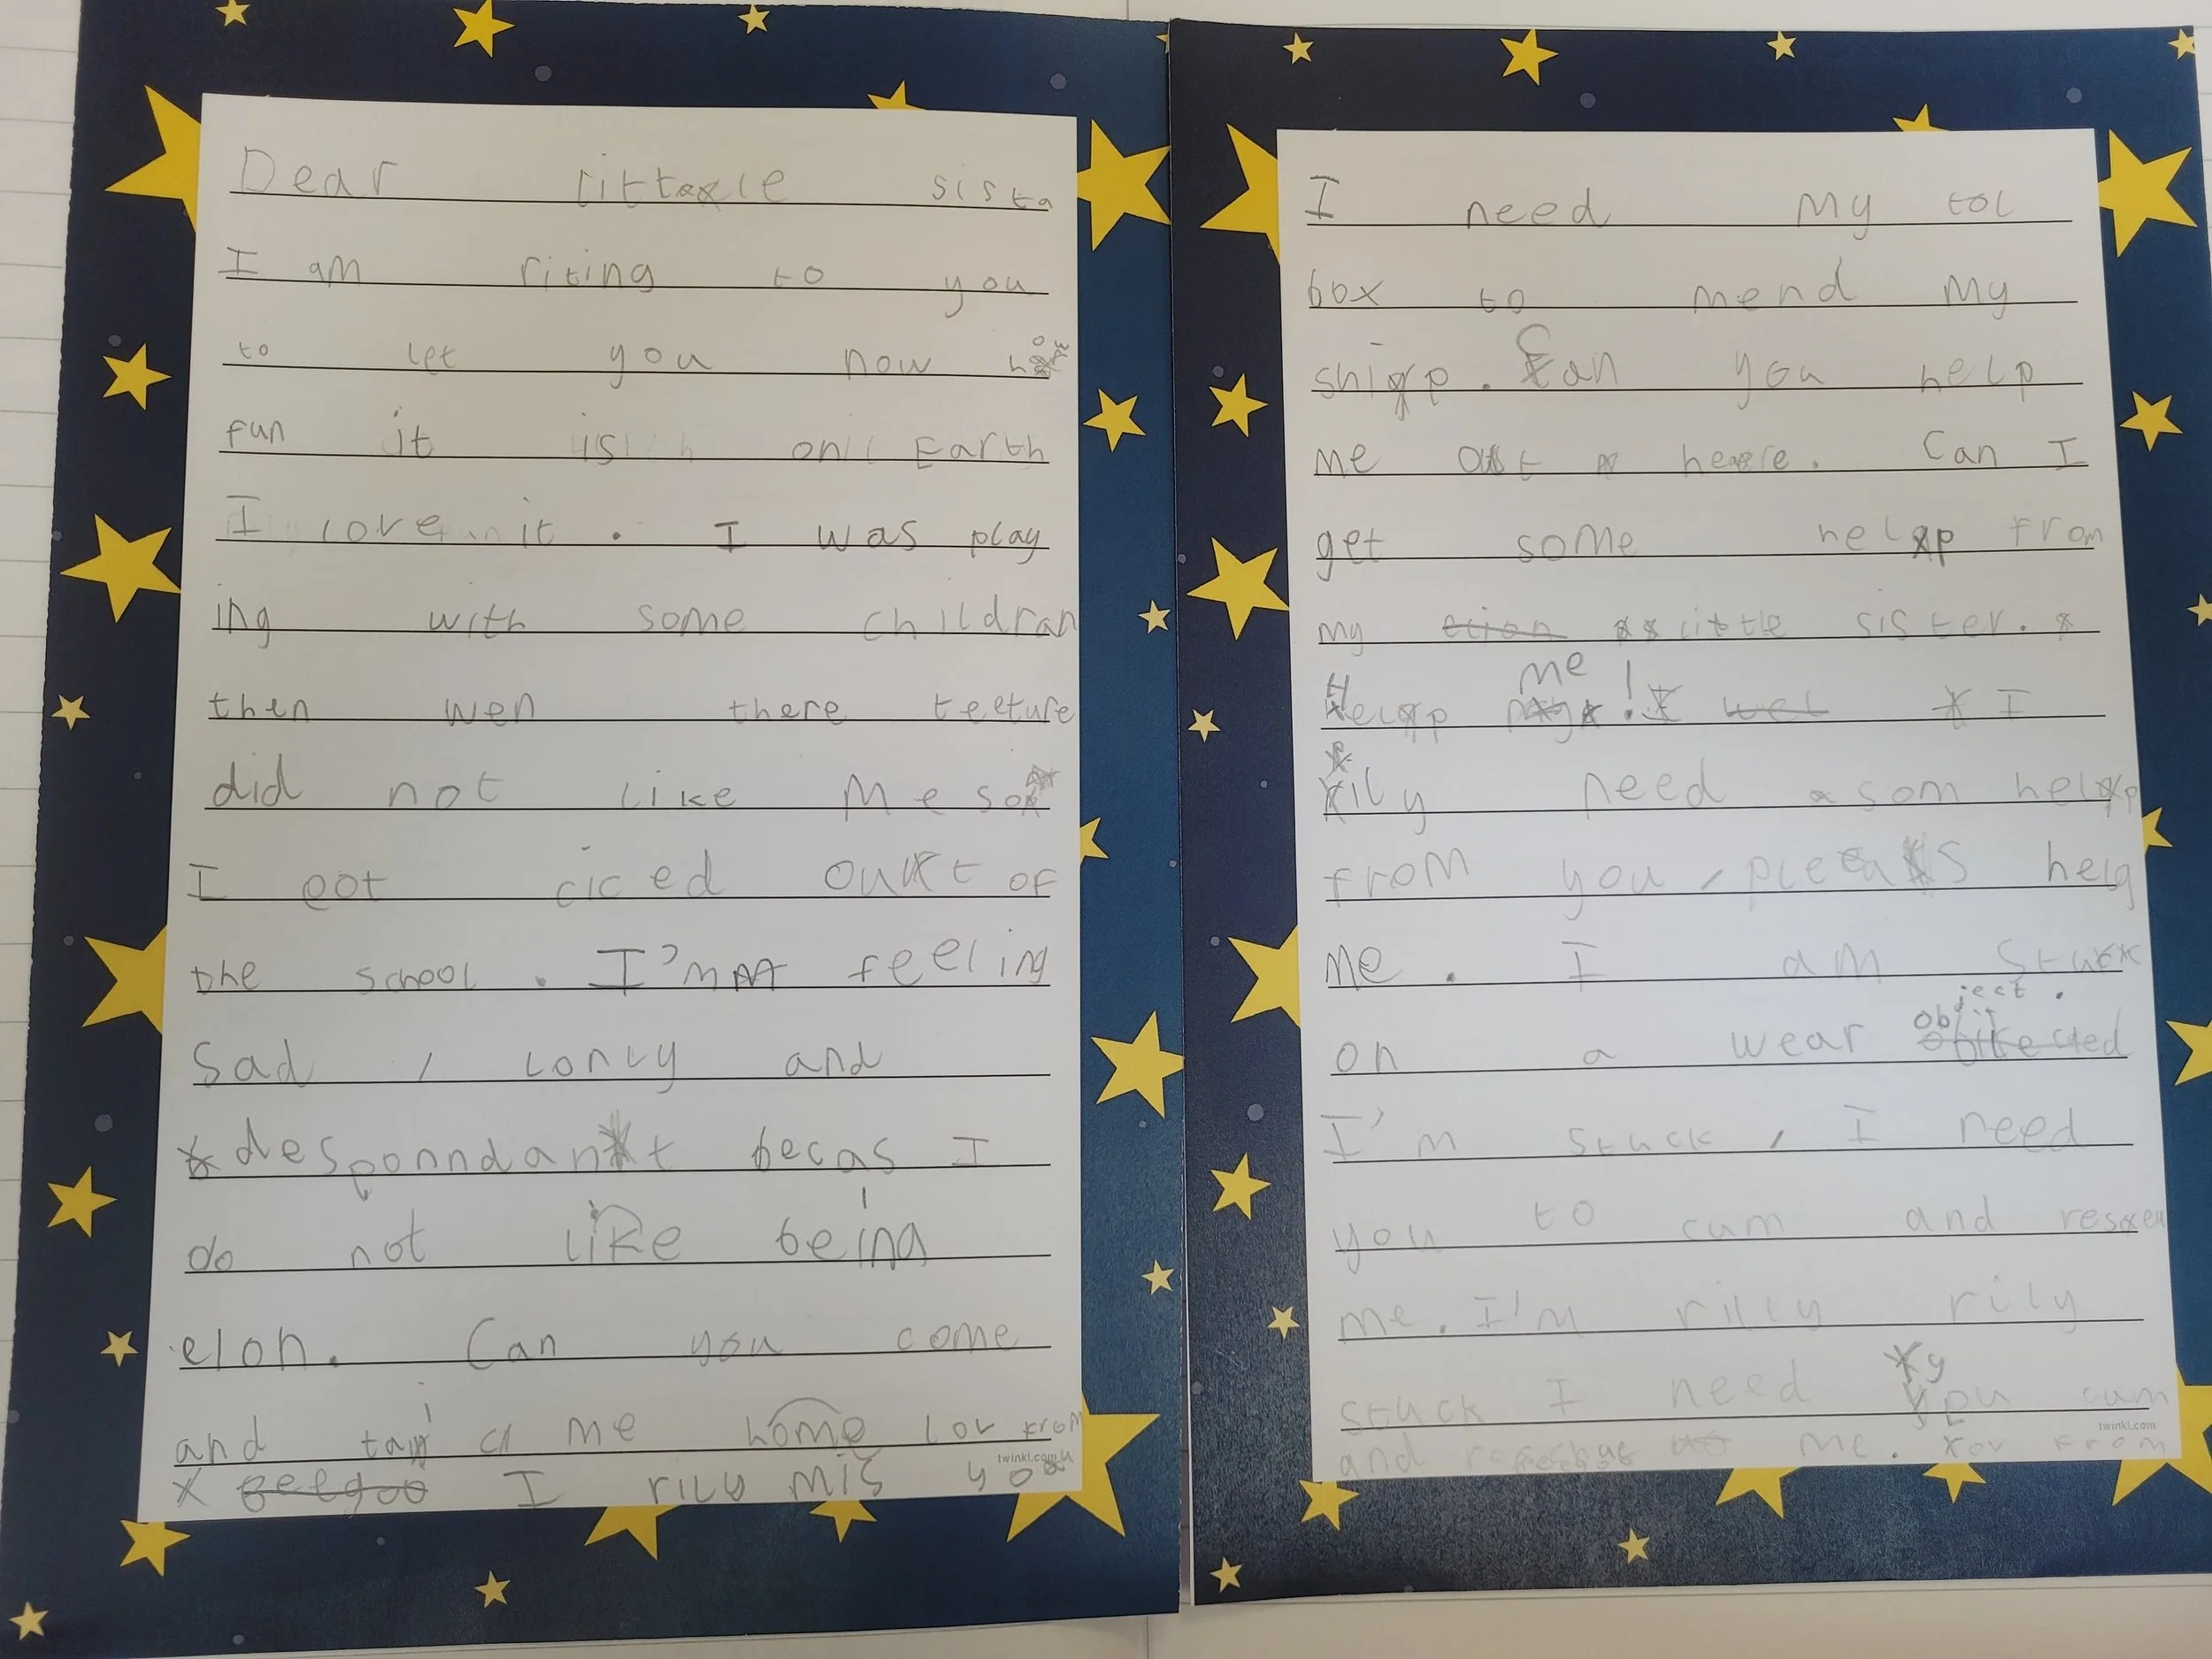 Dear little sista
I am riting to you
to let you now how
fun it is on Earth
I love it . I was play
ing with some childran
then wen there teeture
did not like me so
I got ciced out of
the school . I'm feeling
Sad , lonly and
desponndant becas I
do not like being
elon. Can you come
and me home lov from
I rily mis you
twinkl.com
I need my tol
box to mend my
ship . Can you help
me out here . Can I
get some help from
my little sister.
Help me ! I
rily need som help
from you , pleas help
me . I am stuck
on a wear object .
I'm stuck , I need
you to cum and
me . I'm rilly rily
stuck I need you cum
twinkl.com
and me. from